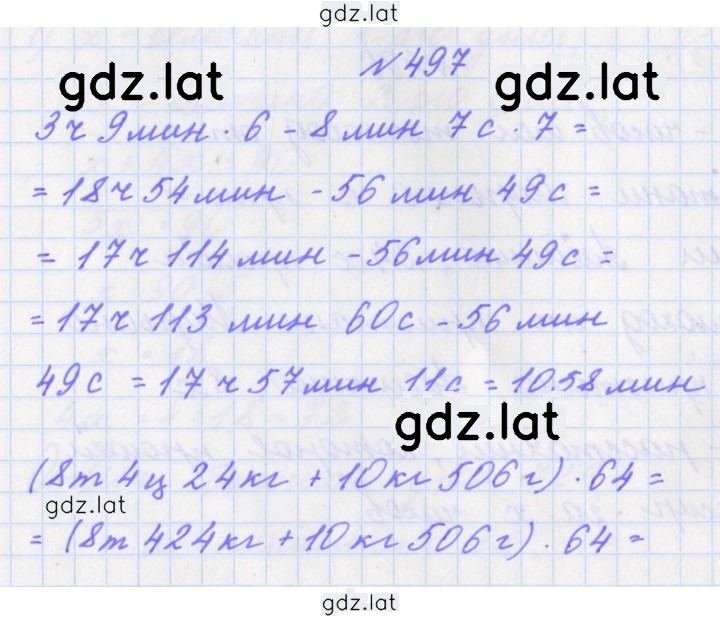 gdz.lat
№ 497
gdz.lat gdz.lat
3ч 9мин · 6 - 8мин 7с · 7 =
= 18ч 54мин - 56мин 49с =
= 17ч 114мин - 56мин 49с =
= 17ч 113мин 60с - 56мин
49с = 17ч 57мин 11с = 1058мин
gdz.lat
(8т 4ц 24кг + 10кг 506г) · 64 =
gdz.lat
= (8т 424кг + 10кг 506г) · 64 =
gdz.lat